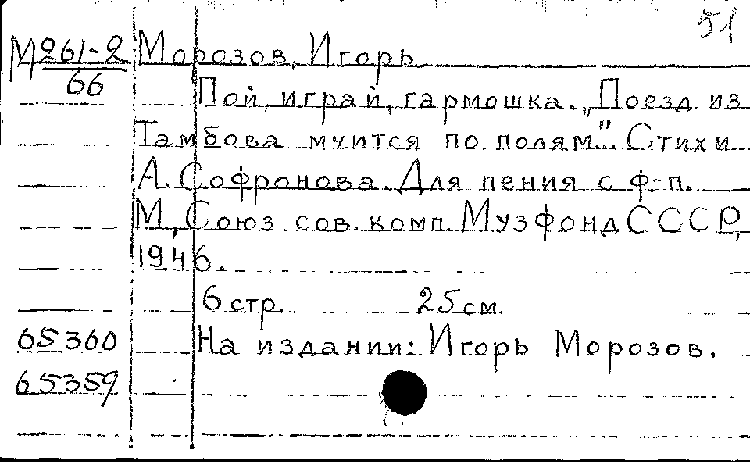 51
М 261-2
66
Морозов, Игорь
Пой, играй, гармошка. „Поезд из
Тамбова мчится по полям". Стихи
А. Софронова. Для пения с ф-п.
М., Союз сов. комп. Музфонд СССР,
1946.
6 стр. 25 см.
65360
На издании: Игорь Морозов.
65359